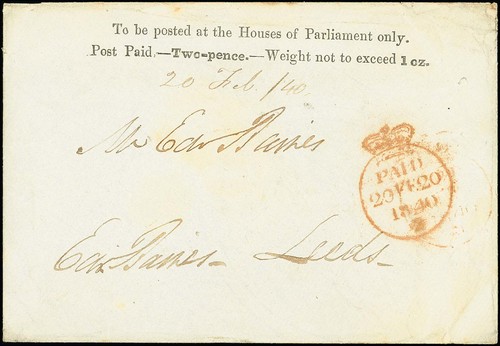 To be posted at the Houses of Parliament only.
Post Paid.—Two-pence.—Weight not to exceed 1 oz.
20 Feb /40
Mr Edw Baines
PAID
20 FE 20
1840
Edw Baines Leeds